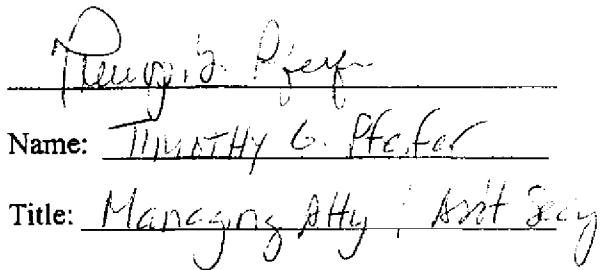 Timothy G. Pfeifer
Name: TIMOTHY G. Pfeifer
Title: Managing Atty / Asst Secy